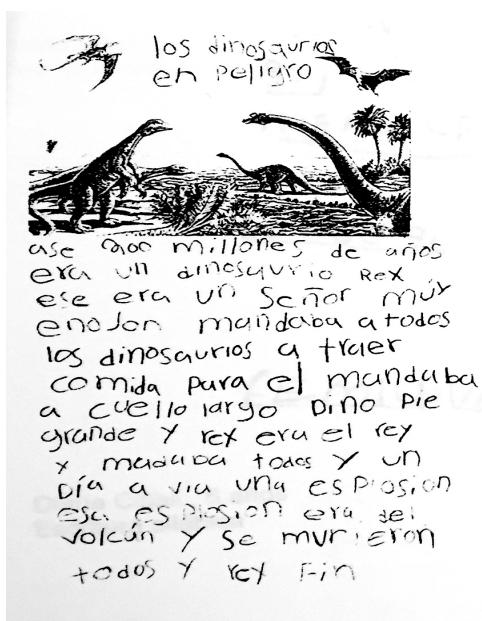 los dinosaurios
en peligro
ase 200 millones de años
era un dinosaurio Rex
ese era un Señor muy
enojon mandaba a todos
los dinosaurios a traer
comida para el mandaba
a cuello largo Dino pie
grande y rex era el rey
y madaba todos y un
Día a via una esplosion
esa esplosion era del
volcán y se murieron
todos y rey Fin